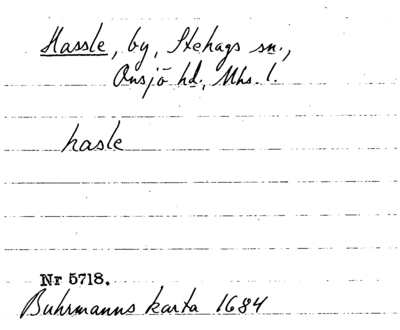 Hassle, by, Stehags sn.,
Onsjö hd., Mhs. l.
hasle
Nr 5718.
Buhrmanns karta 1684